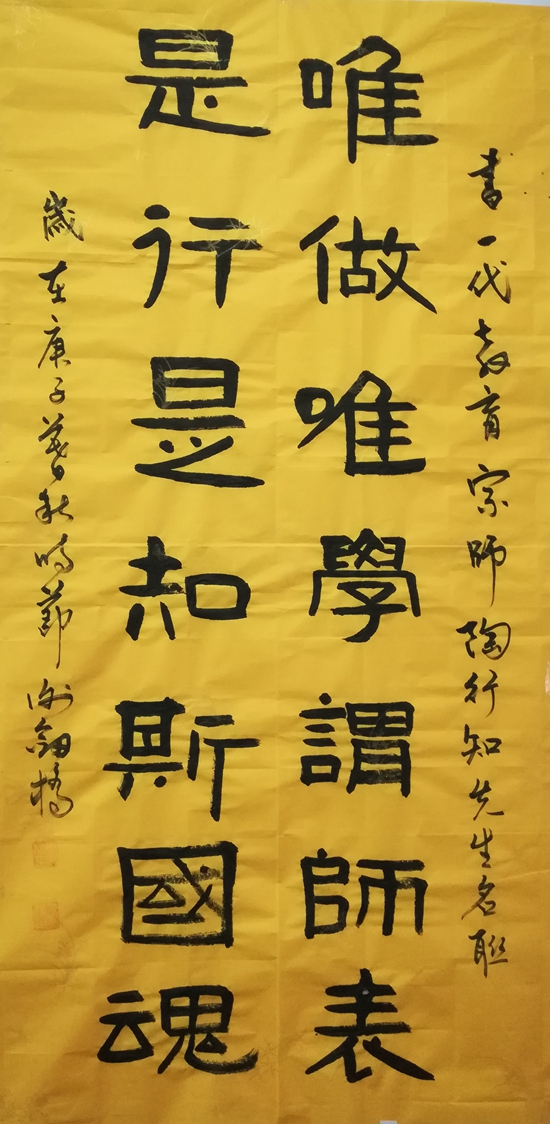 書一代教育宗師陶行知先生名聯
唯做唯學謂師表
是行是知斯國魂
歲在庚子暮秋時節謝劍橋